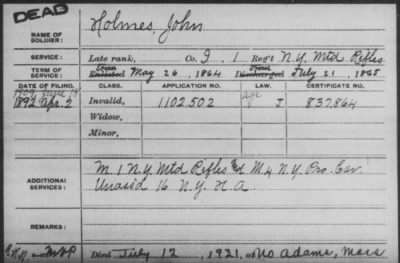 DEAD
NAME OF SOLDIER: Holmes, John
SERVICE: Late rank, Co. I 1 Reg't N.Y. Mtd Rifles
TERM OF SERVICE: Enlisted May 26, 1864 Discharged July 21, 1865
DATE OF FILING. CLASS. APPLICATION NO. LAW. CERTIFICATE NO.
1892 Apr. 2 Invalid, 1102502 J 837864
Widow,
Minor,
ADDITIONAL SERVICES: M. 1 N.Y. Mtd Rifles and M 4 N.Y. Pro. Cav.
Unasd 16 N.Y. H A
REMARKS:
Died July 12, 1921, at No Adams, Mass